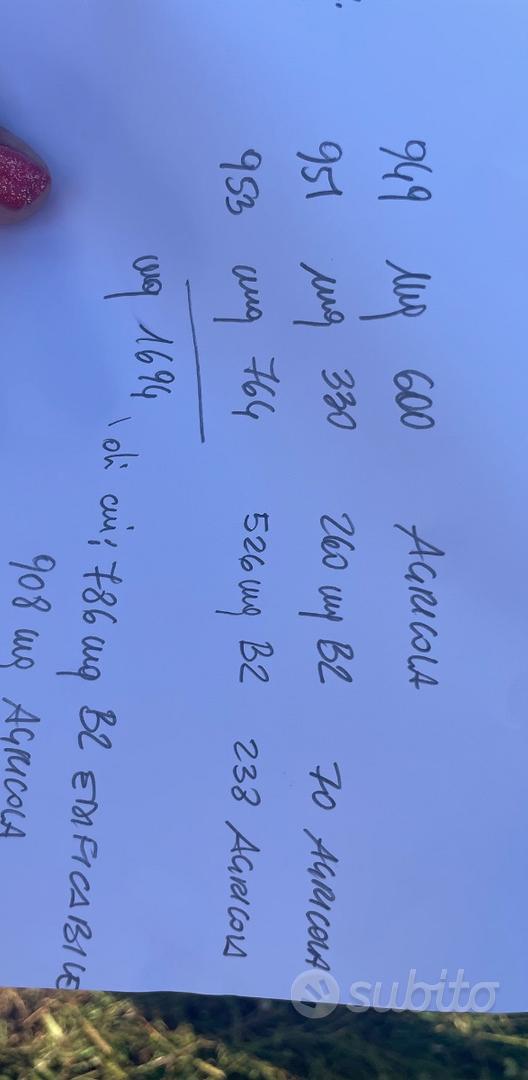 949 mq 600 AGRICOLA
951 mq 330 260 mq B2 70 AGRICOLA
953 mq 764 526 mq B2 238 AGRICOLA
mq 1694, di cui: 786 mq B2 EDIFICABILE
908 mq AGRICOLA
subito